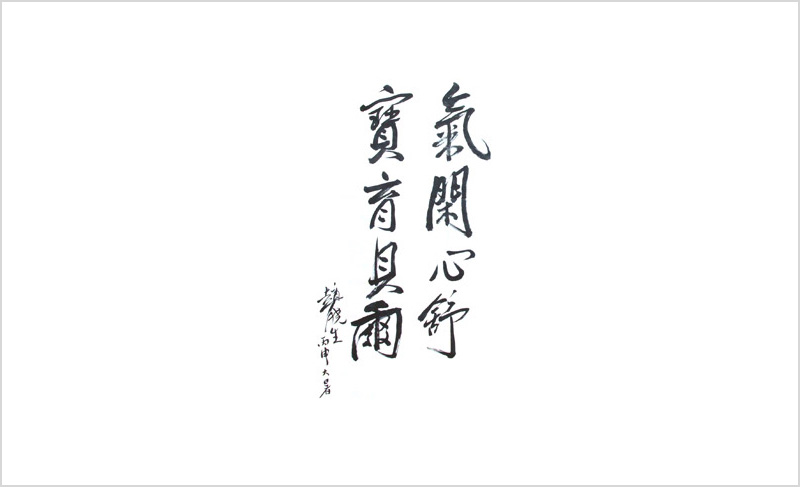 氣閑心舒
寶育貝爾
魏晓生
丙申大暑